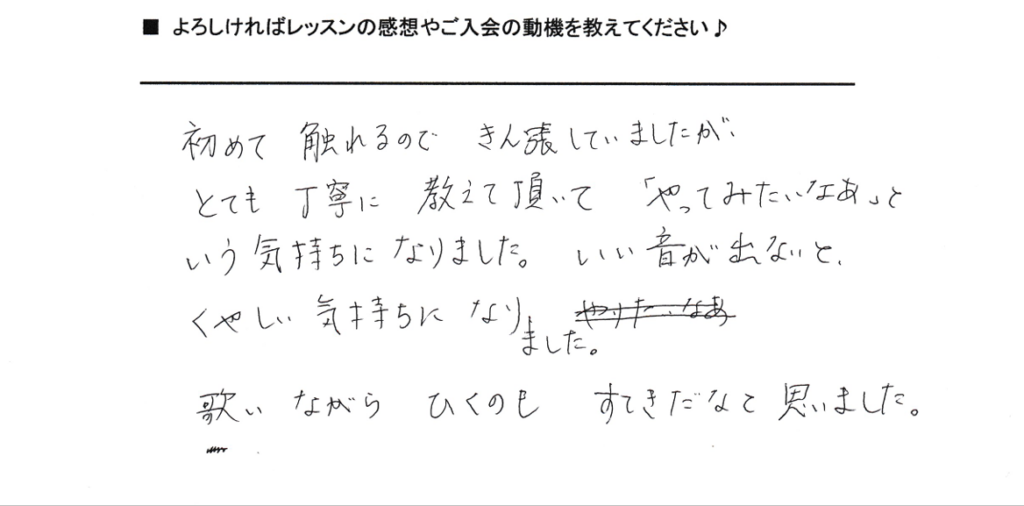 ■ よろしければレッスンの感想やご入会の動機を教えてください♪
初めて 触れるので きん張していましたが、
とても 丁寧に 教えて頂いて 「やってみたいなあ」と
いう気持ちに なりました。 いい音が出ないと、
くやしい 気持ちに なり やりたいなあ
ました。
歌い ながら ひくのも すてきだなと 思いました。